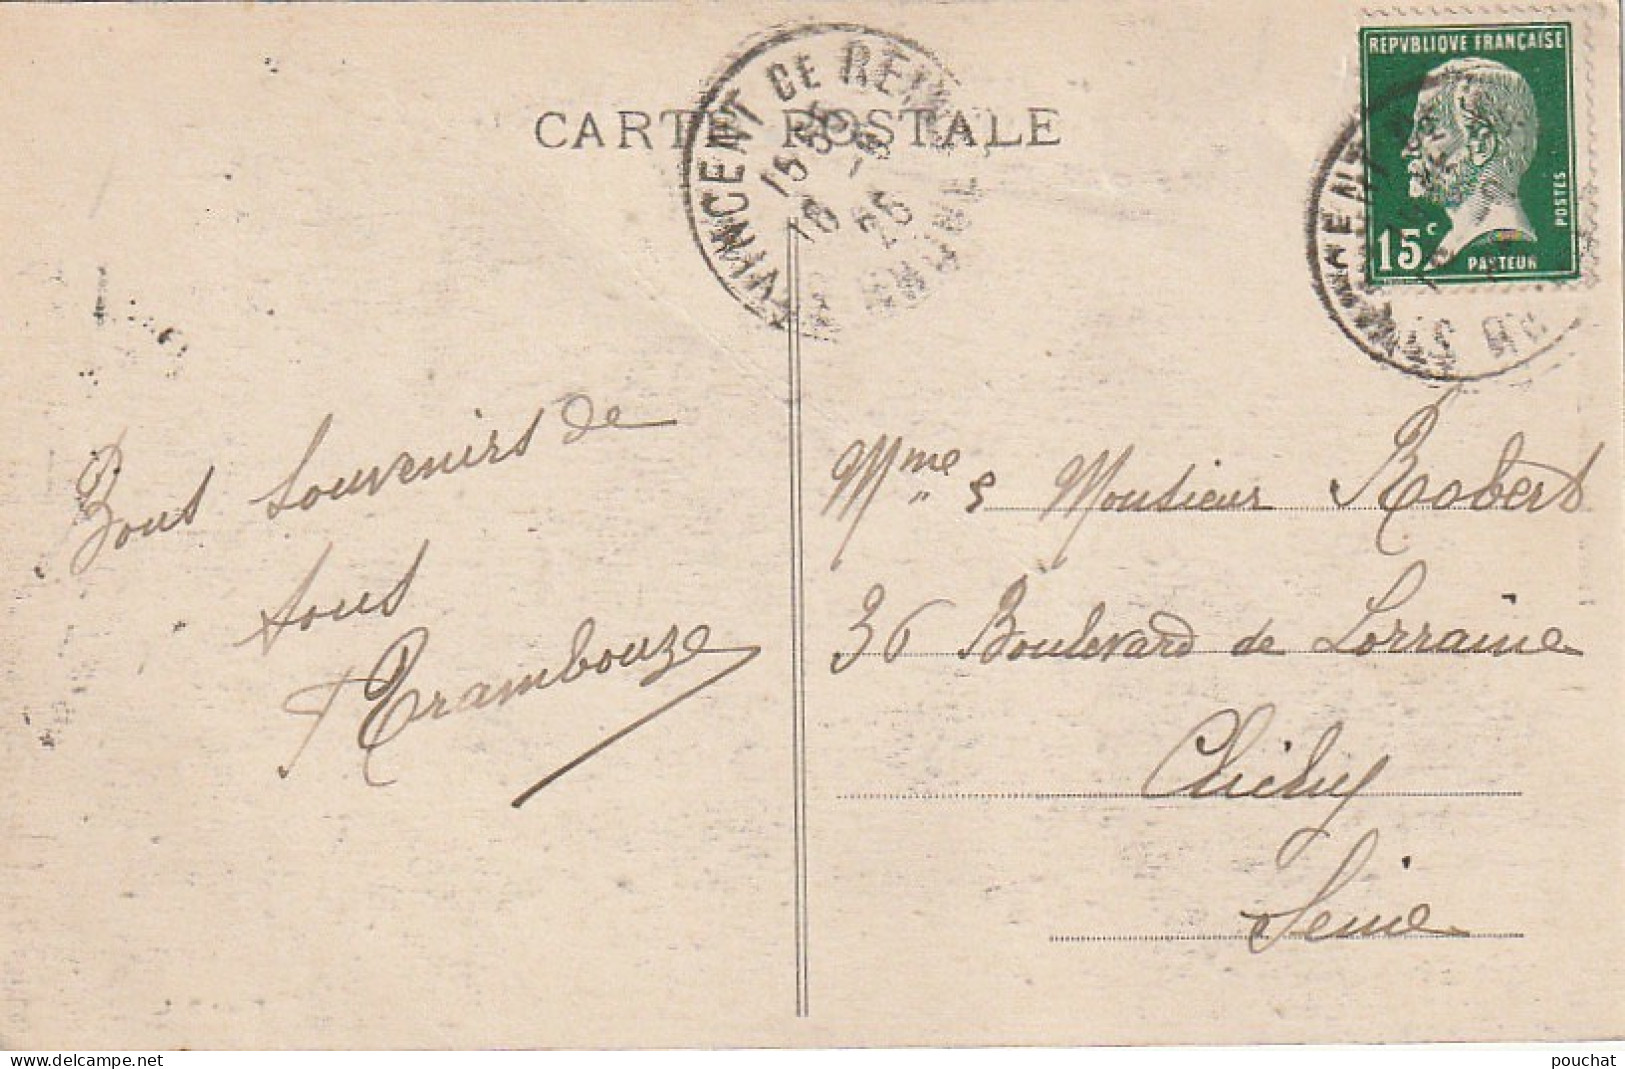 CARTE POSTALE
REPVBLIQVE FRANÇAISE
POSTES
15c
PASTEUR
VINCENT DE REINS
15 35
18 -8
26
Bons souvenirs de
tous
Trambouze
Mme & Monsieur Robert
36 Boulevard de Lorraine
Clichy
Seine
www.delcampe.net
pouchat